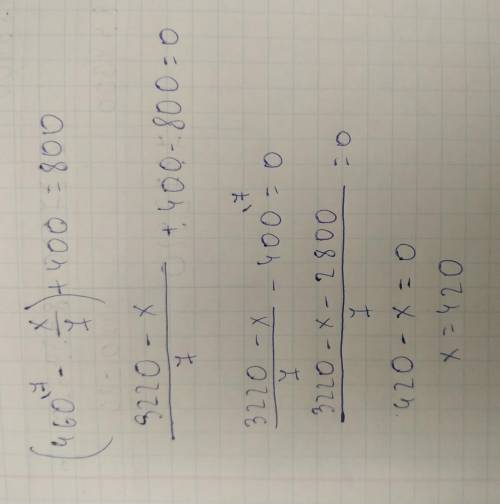 (460^{\7} - \frac{x}{7}) + 400 = 800
\frac{3220 - x}{7} + 400 - 800 = 0
\frac{3220 - x}{7} - 400^{\7} = 0
\frac{3220 - x - 2800}{7} = 0
420 - x = 0
x = 420